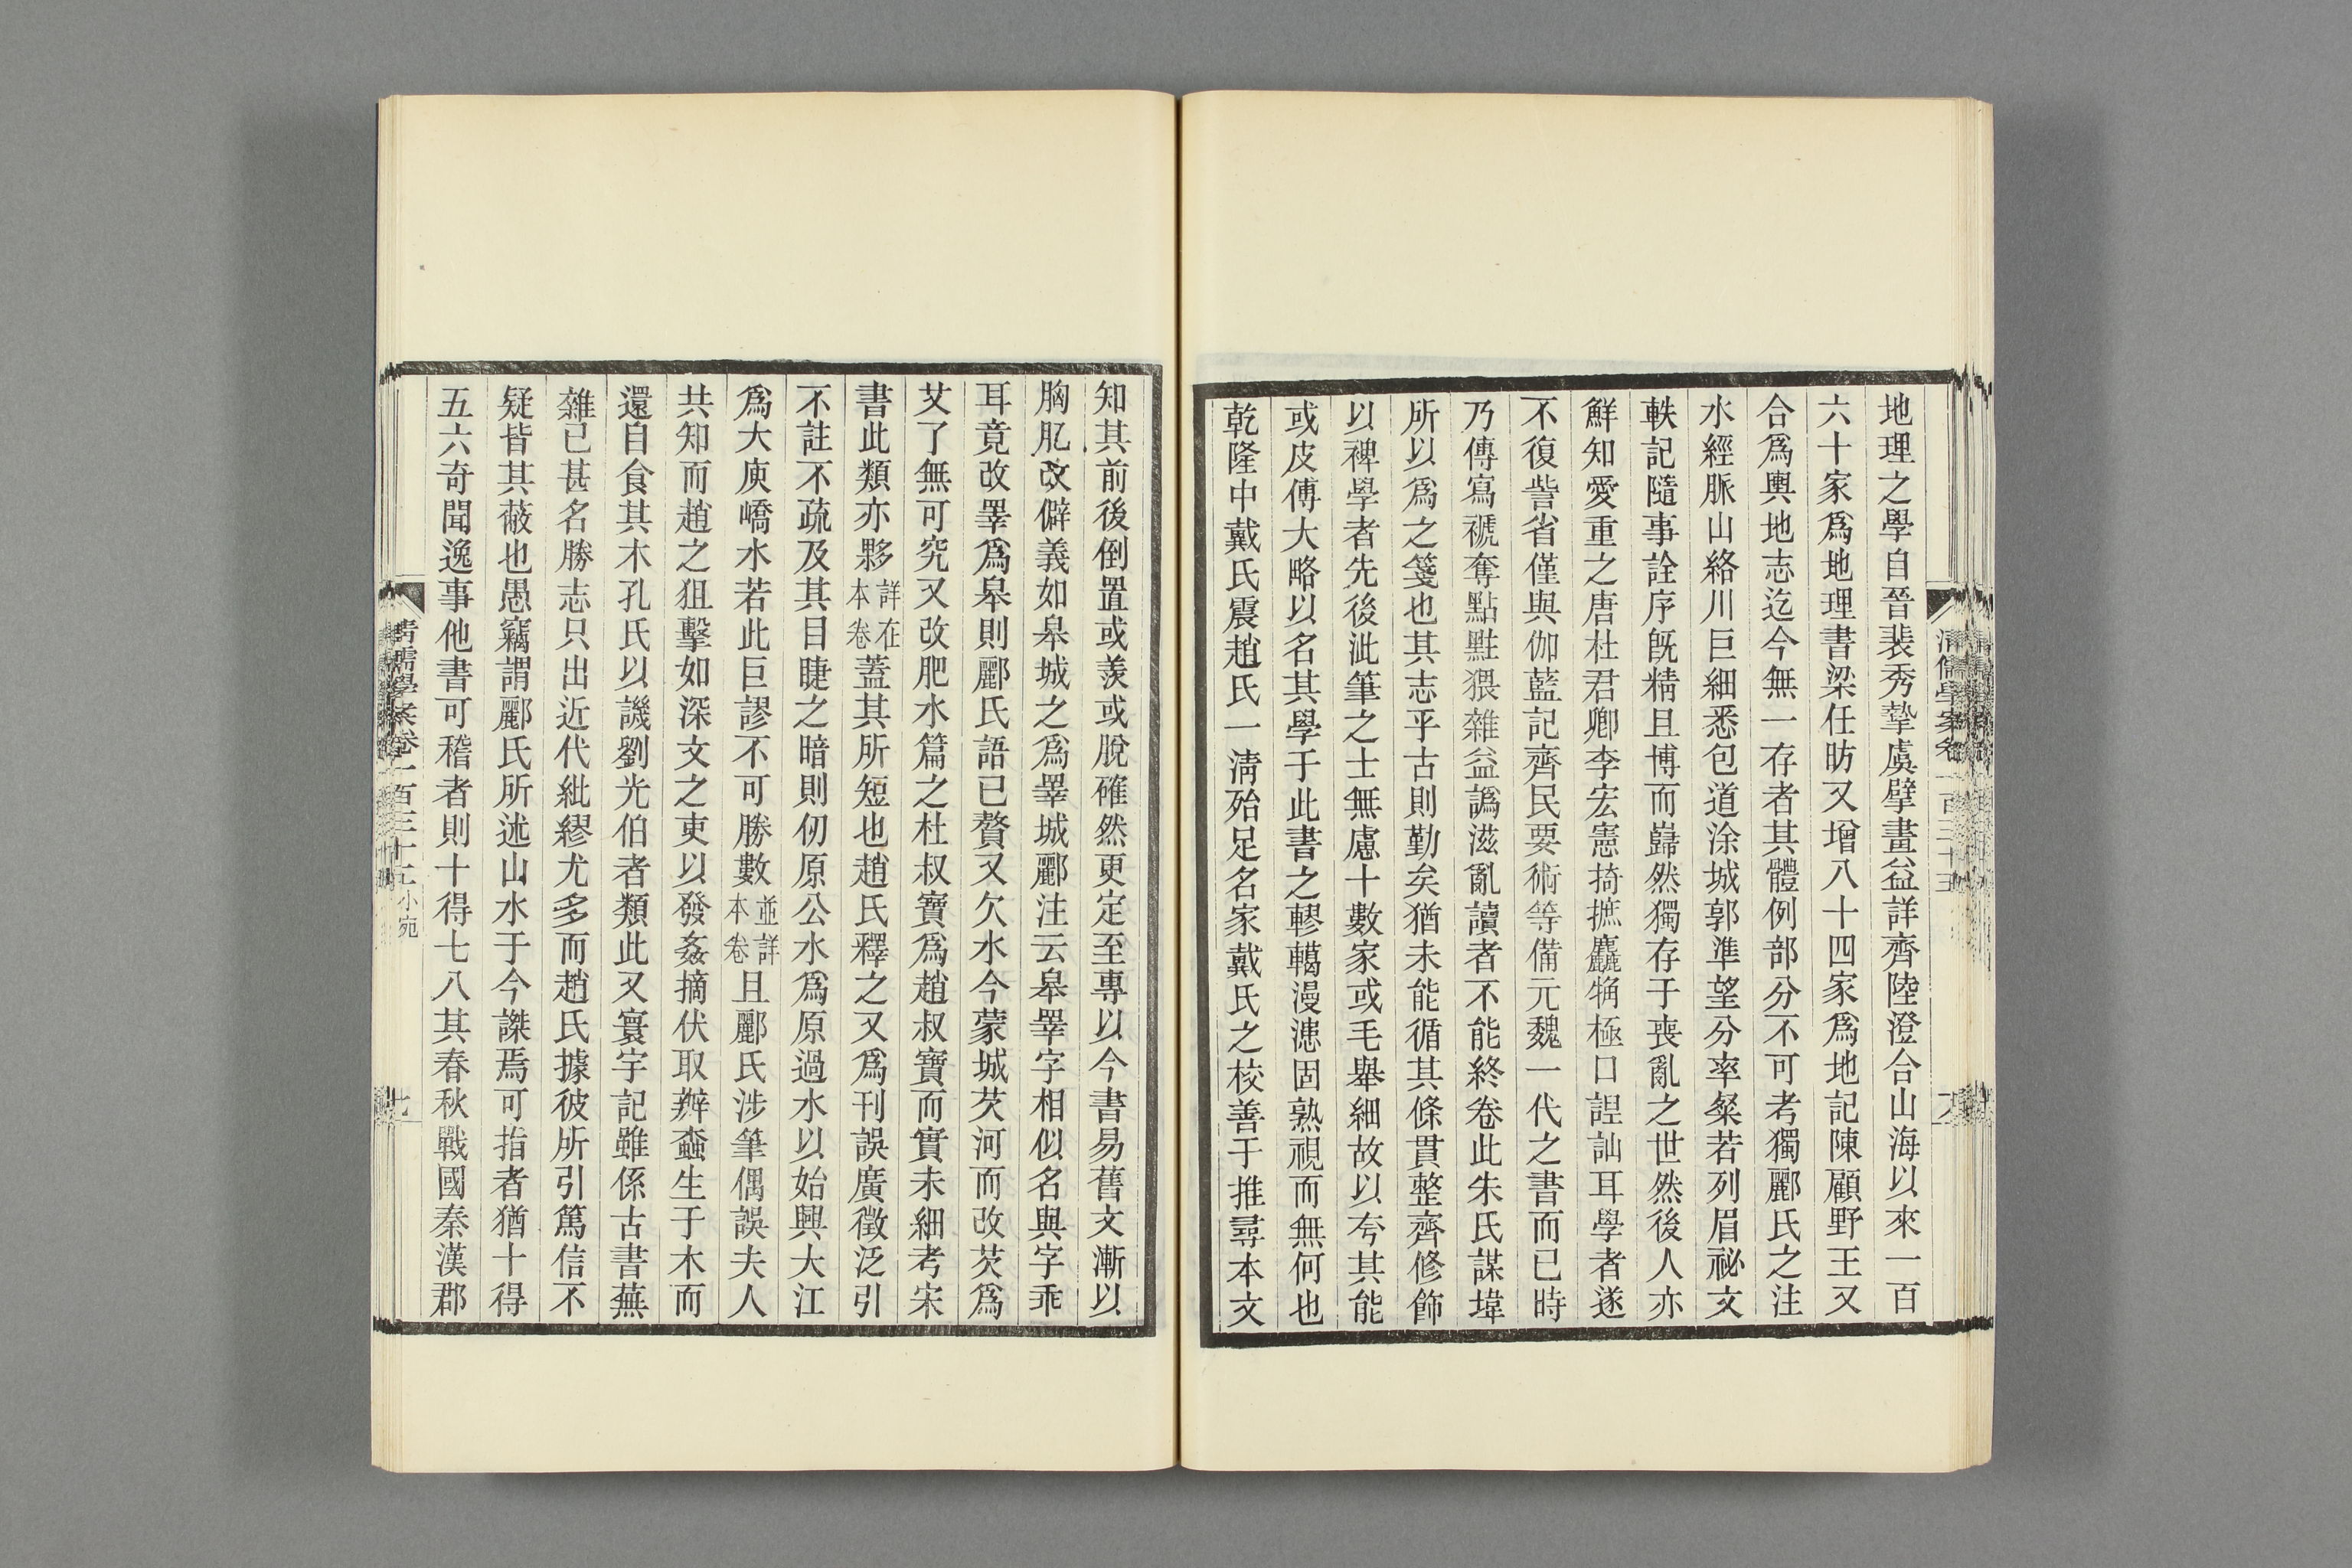 地理之學自晉裴秀摯虞擘畫益詳齊陸澄合山海以來一百
六十家爲地理書梁任昉又增八十四家爲地記陳顧野王又
合爲輿地志迄今無一存者其體例部分不可考獨酈氏之注
水經脈山絡川巨細悉包道涂城郭準望分率粲若列眉祕文
軼記隨事詮序旣精且博而巋然獨存于喪亂之世然後人亦
鮮知愛重之唐杜君卿李宏憲掎摭麤觕極口誹訕耳學者遂
不復訾省僅與伽藍記齊民要術等備元魏一代之書而已時
乃傳寫褫奪點黈猥雜益譌滋亂讀者不能終卷此朱氏謀㙔
所以爲之箋也其志乎古則勤矣猶未能循其條貫整齊修飾
以裨學者先後泚筆之士無慮十數家或毛舉細故以夸其能
或皮傅大略以名其學于此書之轇轕漫漶固熟視而無何也
乾隆中戴氏震趙氏一淸殆足名家戴氏之校善于推尋本文
知其前後倒置或羡或脫確然更定至專以今書易舊文漸以
胸肊改僻義如皋城之爲睪城酈注云皋睪字相似名與字乖
耳竟改睪爲皋則酈氏語已贅又欠水今蒙城芡河而改芡爲
艾了無可究又改肥水篇之杜叔寶爲趙叔寶而實未細考宋
書此類亦夥詳在本卷蓋其所短也趙氏釋之又爲刊誤廣徵泛引
不註不疏及其目睫之暗則仞原公水爲原過水以始興大江
爲大庾嶠水若此巨謬不可勝數並詳本卷且酈氏涉筆偶誤夫人
共知而趙之狙擊如深文之吏以發姦摘伏取辦蠧生于木而
還自食其木孔氏以譏劉光伯者類此又寰宇記雖係古書蕪
雜已甚名勝志只出近代紕繆尤多而趙氏據彼所引篤信不
疑皆其蔽也愚竊謂酈氏所述山水于今謋焉可指者猶十得
五六奇聞逸事他書可稽者則十得七八其春秋戰國秦漢郡